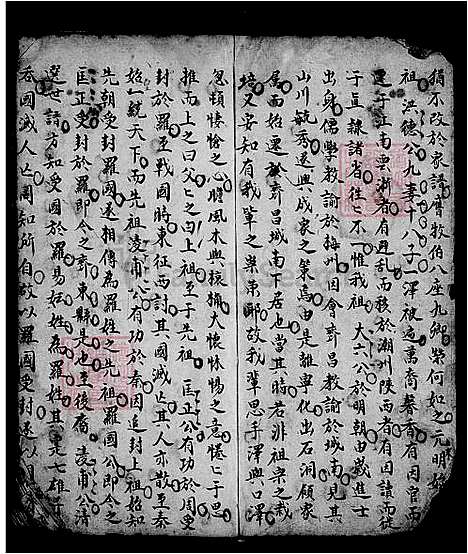 猶不改於家譜曆數伯八座九卿榮何如之元明始
祖洪德公九妻十八子一澤被遍萬裔馨香有因官而
遷于江南雲浙者有避乱而移於潮州陝西者有因讀而從
于直隸諸省徃〻不一惟我祖大六公於明朝由歲進士
出身儒學教諭於梅州因會齊昌教諭於城南見其
山川毓秀遂興成家之策焉由是離寧化出石洞領家
属而始遷於齊昌城南下居也當其時若非祖宗之栽
培又安知有我輩之樂哉故我輩思手澤興口澤
忽頓悽愴之心瞻風木與㮄大懷怵惕之意惓〻于思
推而上之曰父〻之曰上祖至于先祖 匡正公有功於周受
封於羅至戰國時東征西討其國滅亡其人亦散至秦
始一統天下而先祖凌甫公有功於秦因追封上祖始知
先朝受封羅國遂相傳為羅姓之先祖羅國公即今之
匡正受封於羅即今之齊東縣是也至後裔 凌甫公清
選世諸方知受國於羅易姓為羅姓其走七雄
吞國滅人亡周知所自故以羅國受封遂以